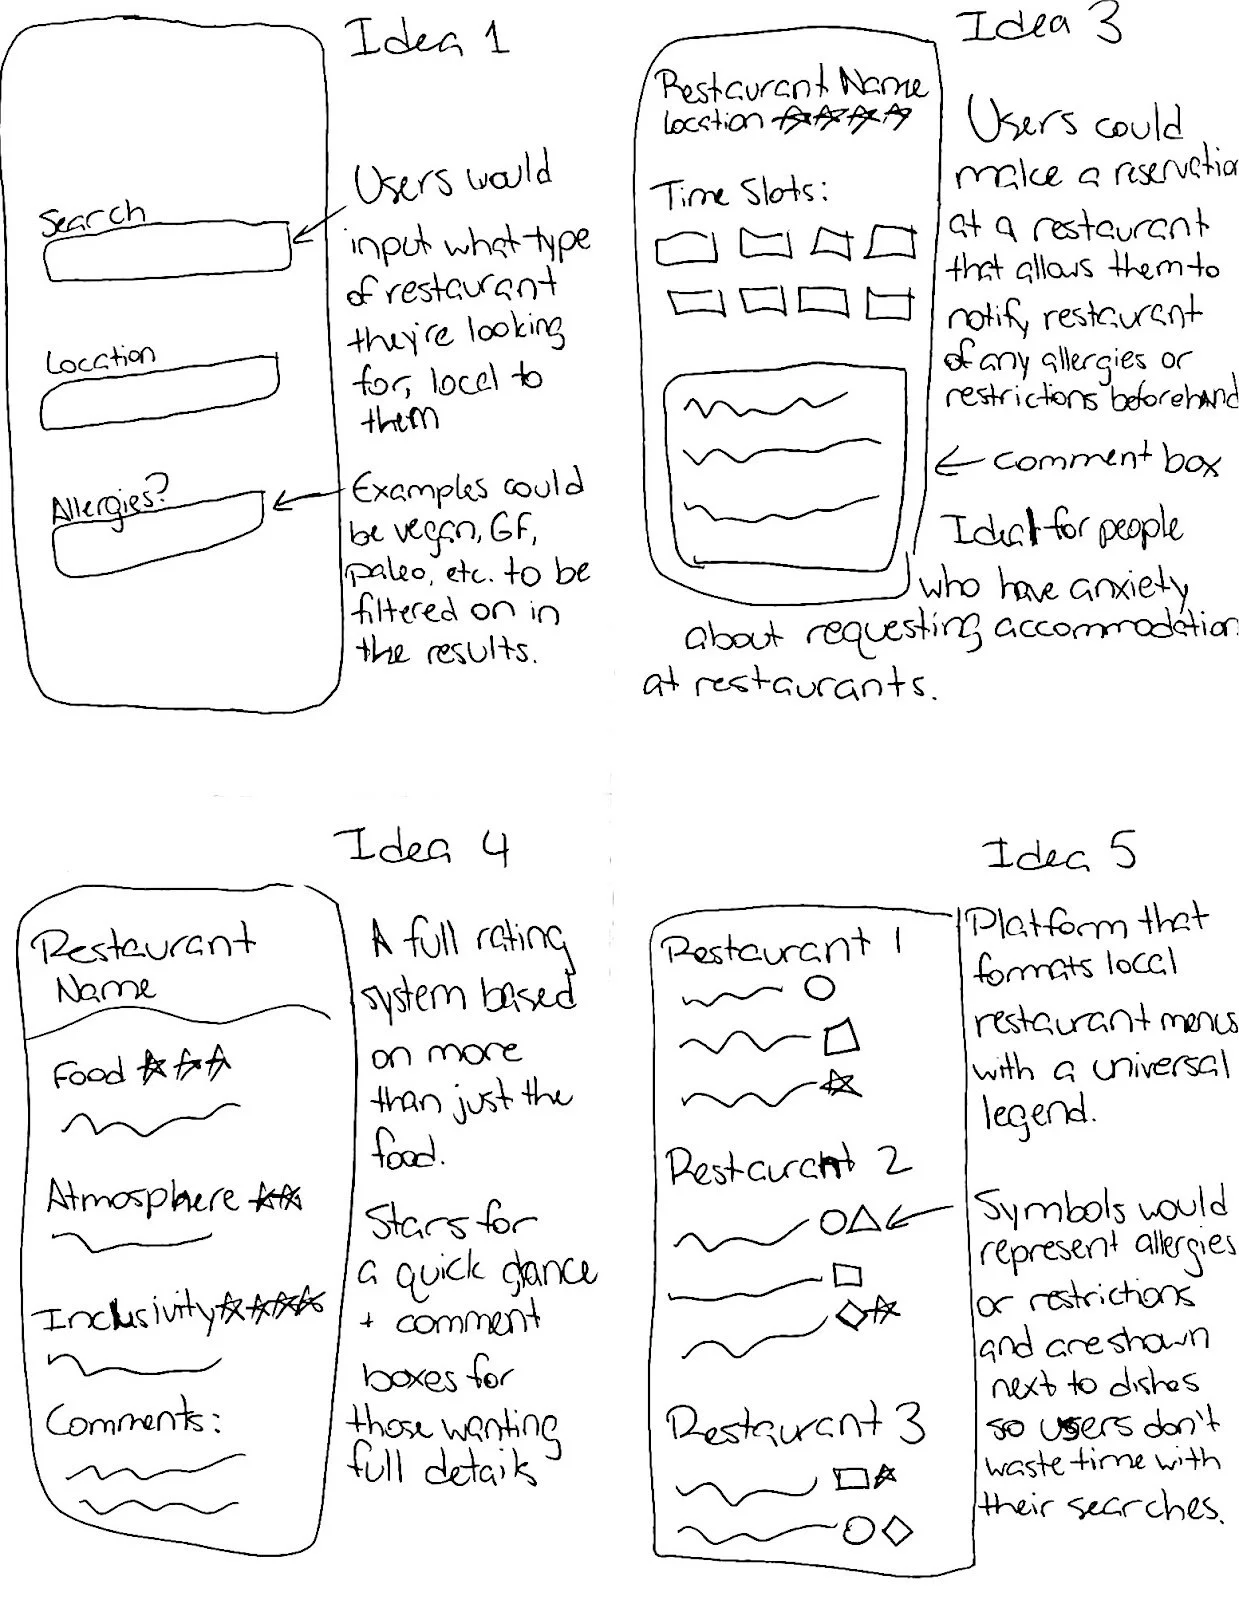 Idea 1
Search
Location
Allergies?
Users would
input what type
of restaurant
they're looking
for, local to
them
Examples could
be vegan, GF,
paleo, etc. to be
filtered on in
the results.
Idea 3
Restaurant Name
Location
Time Slots:
Users could
make a reservation
at a restaurant
that allows them to
notify restaurant
of any allergies or
restrictions beforehand
comment box
Ideal for people
who have anxiety
about requesting accommodation
at restaurants.
Idea 4
Restaurant
Name
Food
Atmosphere
Inclusivity
Comments:
A full rating
system based
on more
than just the
food.
Stars for
a quick glance
+ comment
boxes for
those wanting
full details
Idea 5
Restaurant 1
Restaurant 2
Restaurant 3
Platform that
formats local
restaurant menus
with a universal
legend.
Symbols would
represent allergies
or restrictions
and are shown
next to dishes
so users don't
waste time with
their searches.